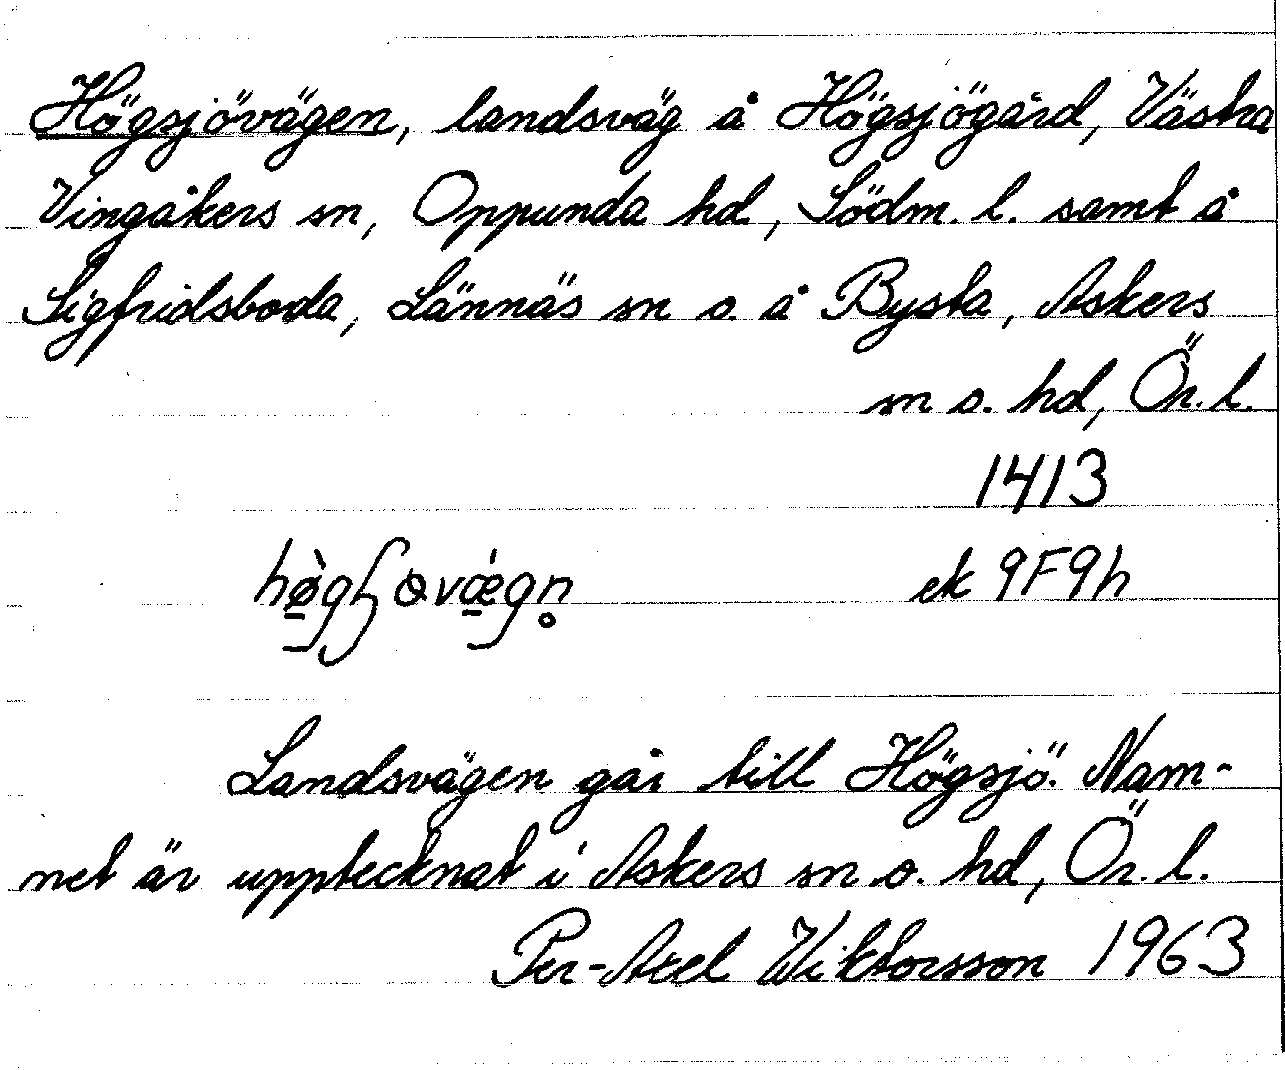 Högsjövägen, landsväg å Högsjögård, Västra
Vingåkers sn, Oppunda hd, Södm. l. samt å
Sigfridsboda, Lännäs sn o. å Bysta, Askers
sn o. hd, Ör. l.
1413
hø̀gʃɵvǽgn̥
ek 9F9h
Landsvägen går till Högsjö. Nam-
net är upptecknat i Askers sn o. hd, Ör. l.
Per-Axel Wiktorsson 1963